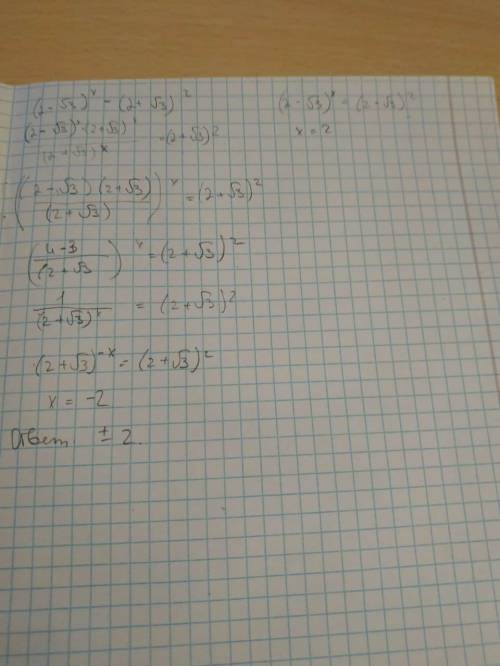 (2-√3)^x = (2+√3)^2
(2-√3)^x · (2+√3)^x / (2+√3)^x = (2+√3)^2
((2-√3)(2+√3) / (2+√3))^x = (2+√3)^2
(4-3 / (2+√3)^x = (2+√3)^2
1 / (2+√3)^x = (2+√3)^2
(2+√3)^-x = (2+√3)^2
x = -2
Ответ ± 2.
(2-√3)^x = (2-√3)^2
x = 2